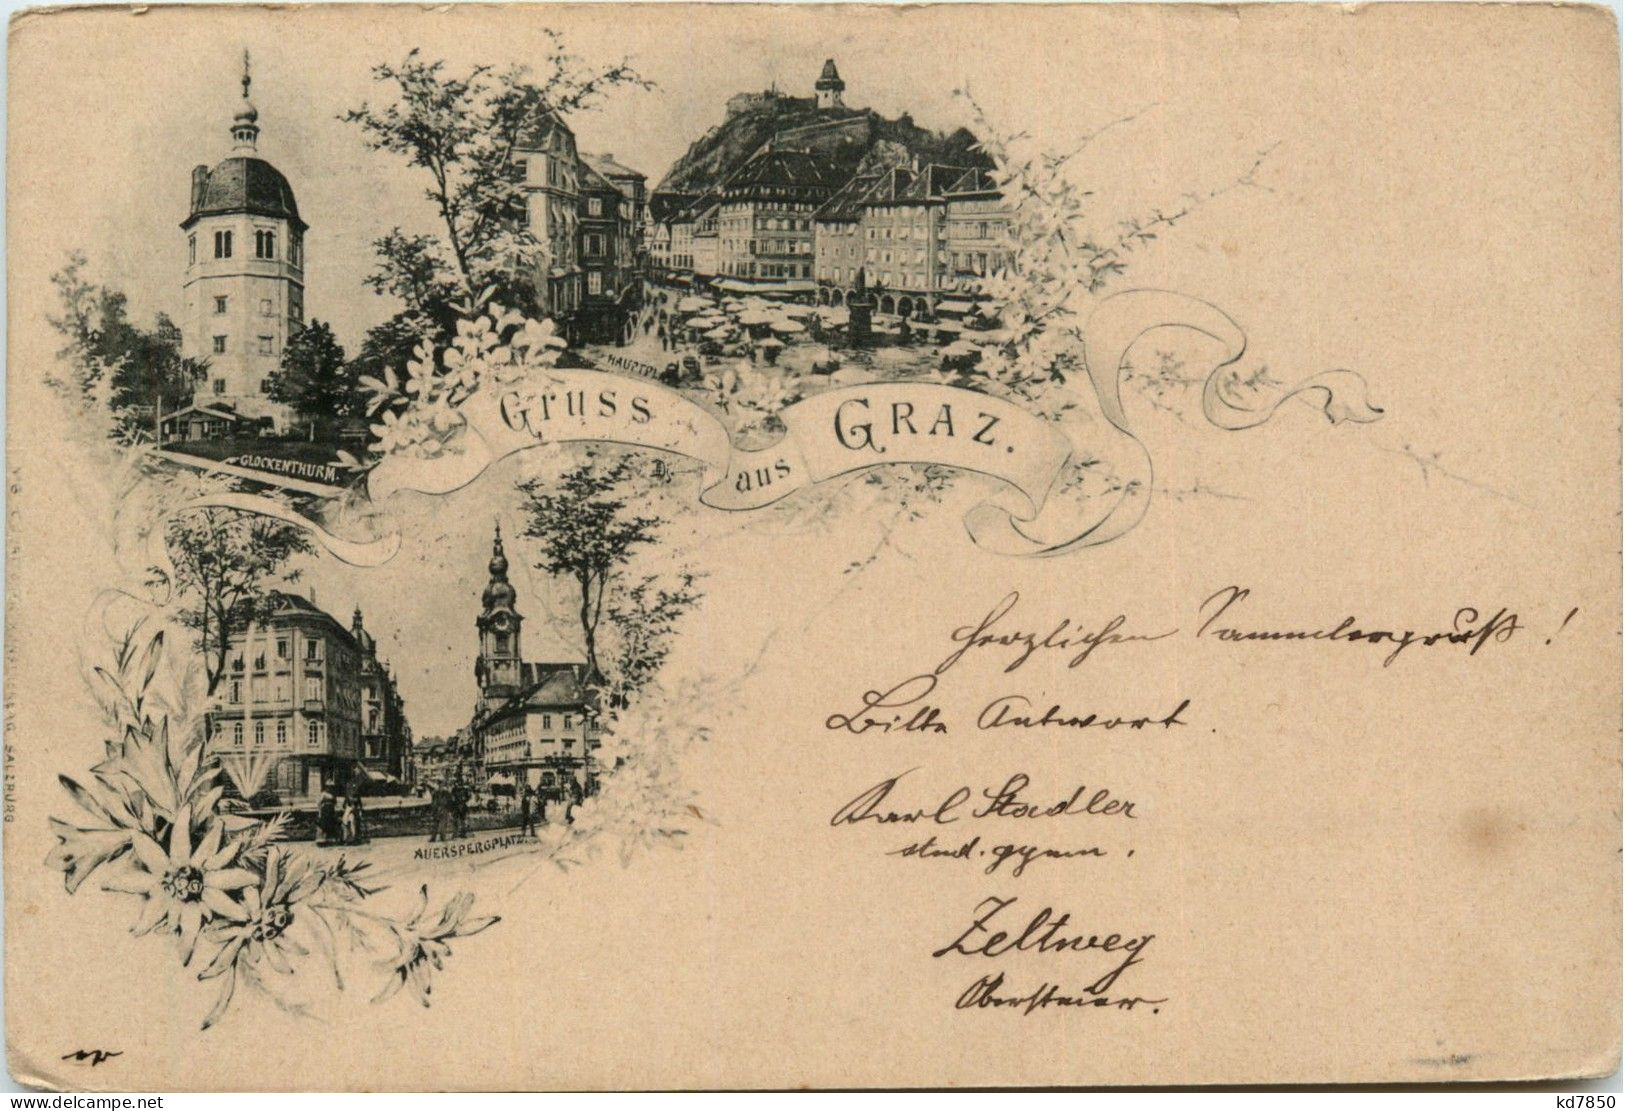 HAUPTPL
Gruss
aus
GRAZ.
GLOCKENTHURM.
AUERSPERGPLATZ.
SALZBURG
Herzlichen Sammlergruß!
Bitte Antwort.
Karl Stadler
stud. gym.
Zeltweg
Obersteier.
www.delcampe.net
kd7850